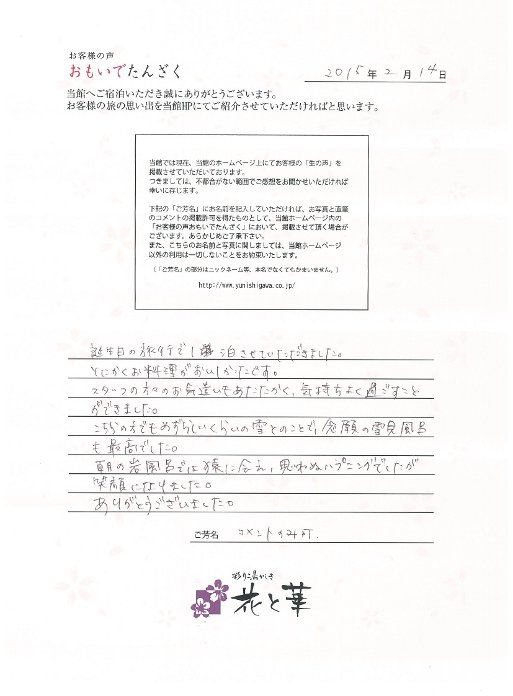 お客様の声
おもいでたんざく
2015年2月14日
当館へご宿泊いただき誠にありがとうございます。
お客様の旅の思い出を当館HPにてご紹介させていただければと思います。
当館では現在、当館のホームページ上にてお客様の「生の声」を
掲載させていただいております。
つきましては、不都合がない範囲でご感想をお聞かせいただければ
幸いに存じます。
下記の「ご芳名」にお名前を記入していただければ、お写真と直筆
のコメントの掲載許可を得たものとして、当館ホームページ内の
「お客様の声おもいでたんざく」において、掲載させて頂く場合が
ございます。あらかじめご了承下さい。
また、こちらのお名前と写真に関しましては、当館ホームページ
以外の利用は一切しないことをお約束いたします。
(「ご芳名」の部分はニックネーム等、本名でなくてもかまいません。)
http://www.yunishigawa.co.jp/
誕生日の旅行で1泊させていただきました。
とにかくお料理がおいしかったです。
スタッフの方々のお気遣いもあたたかく、気持ちよく過ごすこと
ができました。
こちらの方でもめずらしいくらいの雪とのことで、念願の雪見風呂
も最高でした。
朝の岩風呂では猿に会え、思わぬハプニングでしたが
笑顔になりました。
ありがとうございました。
ご芳名 コメントのみ可.
彩り湯かしき
花と華